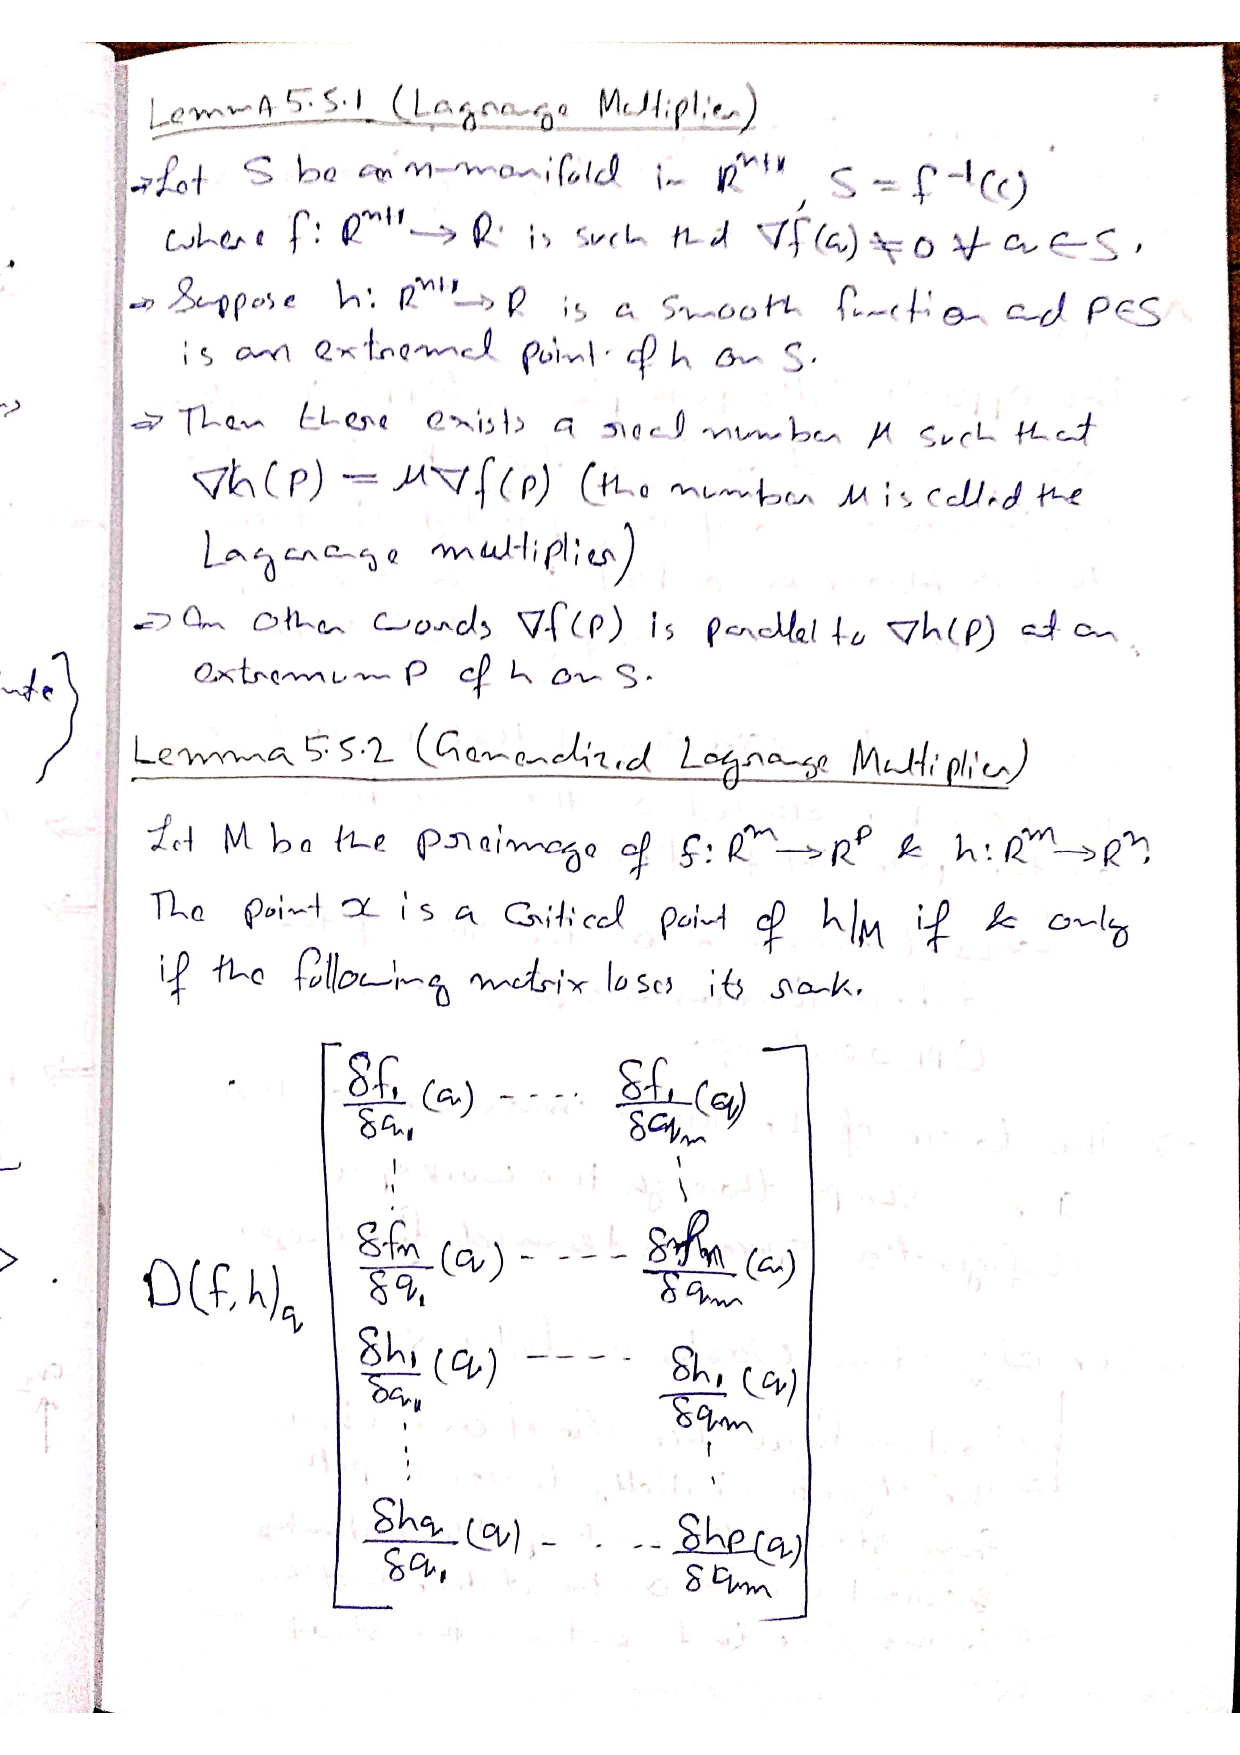 Lemma 5.5.1 (Lagrange Multiplier)
→ Let S be an n-manifold in R^{n+1}, S = f^{-1}(c)
where f: R^{n+1} → R is such that ∇f(q) ≠ 0 ∀ q ∈ S.
⇒ Suppose h: R^{n+1} → R is a smooth function ad P∈S
is an extremal point of h on S.
⇒ Then there exists a real number μ such that
∇h(P) = μ∇f(P) (the number μ is called the
Lagarange multiplier)
⇒ In other words ∇f(P) is parallel to ∇h(P) at an
extremum P of h on S.
Lemma 5.5.2 (Generalized Lagrange Multiplier)
Let M be the preimage of f: R^m → R^P & h: R^m → R^n.
The point x is a Critical point of h/M if & only
if the following matrix loses its rank.
δf₁/δq₁ (q) ---- δf₁/δq_m (q)
δf_n/δq₁ (q) ---- (q)
D(f,h)_q
δh₁/δq₁ (q) ---- δh₁/δq_m (q)
δh_q/δq₁ (q) - . .-- δh_p/δq_m (q)